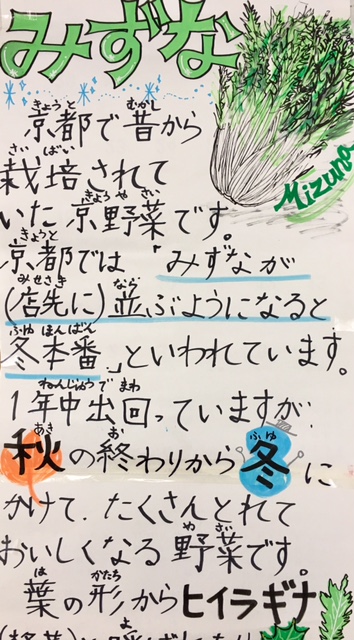 みずな
Mizuna
京都で昔から
栽培されて
いた京野菜です。
京都では「みずなが
(店先に)並ぶようになると
冬本番」といわれています。
1年中出回っていますが、
秋の終わりから冬に
かけて、たくさんとれて
おいしくなる野菜です。
葉の形からヒイラギナ